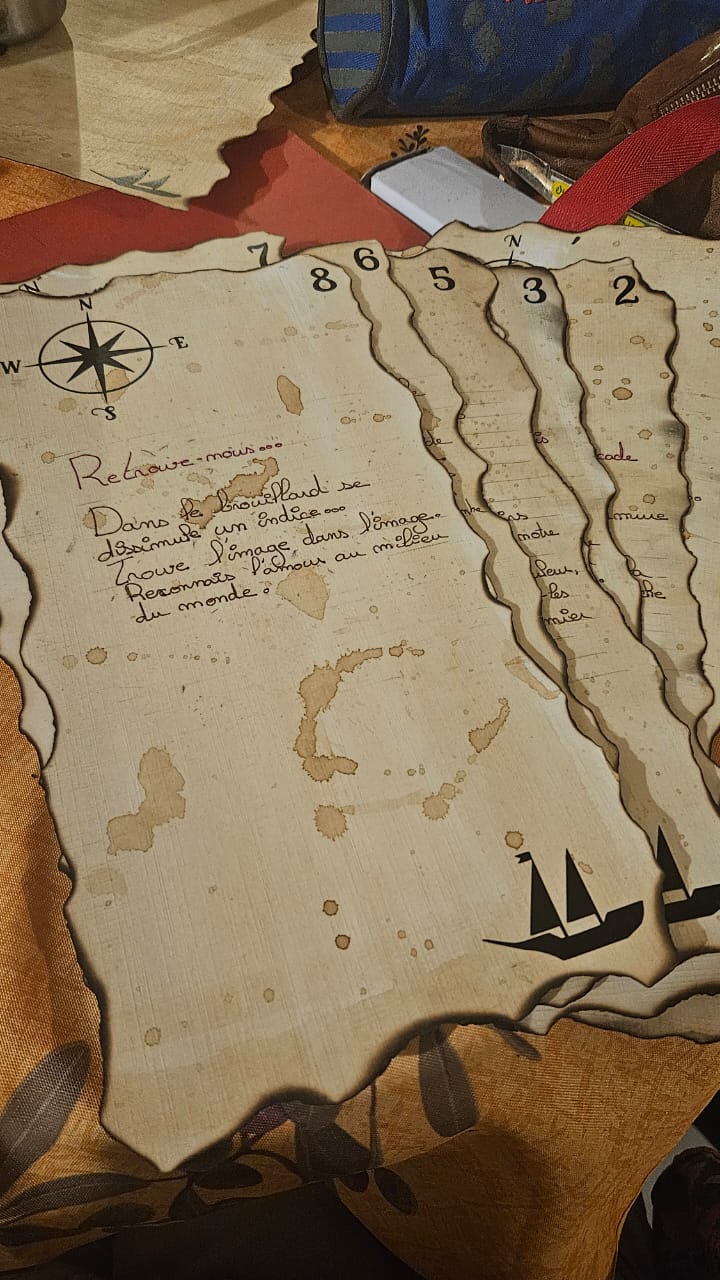 7
8
6
5
3
2
N
N
N
W
E
S
Retrouve-nous...
Dans le brouillard se
dissimule un indice...
Trouve l'image dans l'image..
Reconnais l'amour au milieu
du monde.
de
is
cade
ens
mine
notre
leur,
la
les
che
mier